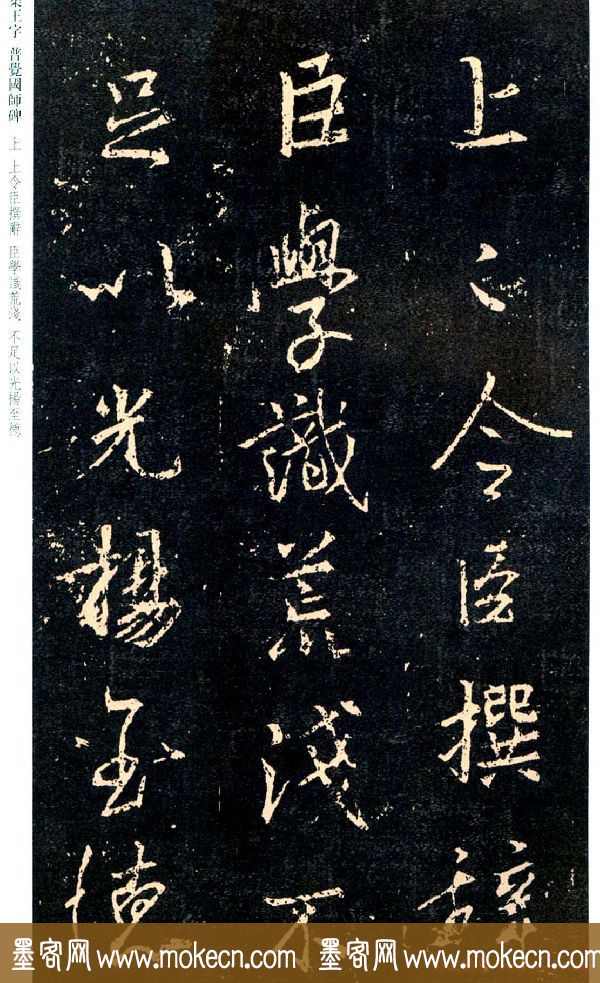 上〻令臣撰辭
臣學識荒淺不
足以光揚至德
集王字 普覺國師碑 上 上令臣撰辭 臣學識荒淺 不足以光揚至德
墨客网 www.mokecn.com 墨客网 www.mokecn.com